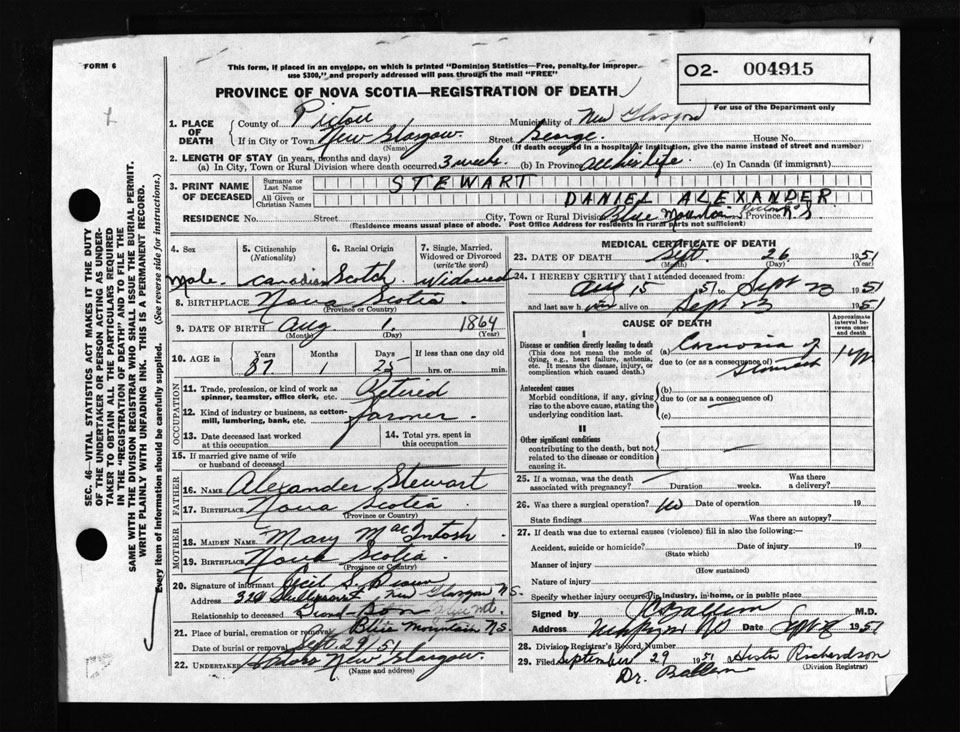 FORM 6
This form, if placed in an envelope, on which is printed "Dominion Statistics—Free, penalty for improper
use $300," and properly addressed will pass through the mail "FREE"
PROVINCE OF NOVA SCOTIA—REGISTRATION OF DEATH
02- 004915
For use of the Department only
1. PLACE OF DEATH
County of Pictou Municipality of New Glasgow
If in City or Town New Glasgow. Street George. House No.
(Name) (If death occurred in a hospital or institution, give the name instead of street and number)
2. LENGTH OF STAY (in years, months and days)
(a) In City, Town or Rural Division where death occurred 3 weeks. (b) In Province all his life. (c) In Canada (if immigrant)
3. PRINT NAME OF DECEASED
Surname or Last Name STEWART
All Given or Christian Names DANIEL ALEXANDER
RESIDENCE No. Street City, Town or Rural Division Blue Mountain Pictou Province N.S.
(Residence means usual place of abode. Post Office Address for residents in rural parts not sufficient)
4. Sex
male.
5. Citizenship (Nationality)
Canadian
6. Racial Origin
Scotch
7. Single, Married, Widowed or Divorced (write the word)
Widowed
8. BIRTHPLACE Nova Scotia
(Province or Country)
9. DATE OF BIRTH Aug 1. 1864
(Month) (Day) (Year)
10. AGE in Years Months Days If less than one day old
87 1 25 hrs. or min.
OCCUPATION
11. Trade, profession, or kind of work as spinner, teamster, office clerk, etc. Retired
12. Kind of industry or business, as cotton-mill, lumbering, bank, etc. farmer.
13. Date deceased last worked at this occupation
14. Total yrs. spent in this occupation
15. If married give name of wife or husband of deceased
FATHER
16. NAME Alexander Stewart
17. BIRTHPLACE Nova Scotia
(Province or Country)
MOTHER
18. MAIDEN NAME Mary MacIntosh
19. BIRTHPLACE Nova Scotia
(Province or Country)
20. Signature of informant Cecil S.
Address New Glasgow N.S.
Relationship to deceased Grand-Son
21. Place of burial, cremation or removal Blue Mountain NS
Date of burial or removal Sept. 29/51
22. UNDERTAKER New Glasgow.
(Name and address)
MEDICAL CERTIFICATE OF DEATH
23. DATE OF DEATH Sept. 26 1951
(Month) (Day) (Year)
24. I HEREBY CERTIFY that I attended deceased from:
Aug 15 1951 to Sept 1951
and last saw him alive on Sept 23 1951
CAUSE OF DEATH
Approximate interval between onset and death
I
Disease or condition directly leading to death
(This does not mean the mode of dying, e.g., heart failure, asthenia, etc. It means the disease, injury, or complication which caused death.)
(a) Carcinoma of
due to (or as a consequence of) Stomach
1 yr
Antecedent causes
Morbid conditions, if any, giving rise to the above cause, stating the underlying condition last.
(b)
due to (or as a consequence of)
(c)
II
Other significant conditions
contributing to the death, but not related to the disease or condition causing it.
25. If a woman, was the death associated with pregnancy? Duration weeks. Was there a delivery?
26. Was there a surgical operation? No Date of operation 19
State findings Was there an autopsy?
27. If death was due to external causes (violence) fill in also the following:
Accident, suicide or homicide? Date of injury 19
(State which)
Manner of injury
(How sustained)
Nature of injury
Specify whether injury occurred in industry, in home, or in public place
Signed by Ballem M.D.
Address Date Sept 1951
28. Division Registrar's Record Number
29. Filed September 29 1951 Richardson
(Division Registrar)
Dr. Ballem
SEC. 46—VITAL STATISTICS ACT MAKES IT THE DUTY
OF THE UNDERTAKER OR PERSON ACTING AS UNDER-
TAKER TO OBTAIN ALL THE PARTICULARS REQUIRED
IN THE "REGISTRATION OF DEATH" AND TO FILE THE
SAME WITH THE DIVISION REGISTRAR WHO SHALL ISSUE THE BURIAL PERMIT.
WRITE PLAINLY WITH UNFADING INK. THIS IS A PERMANENT RECORD.
Every item of information should be carefully supplied. (See reverse side for instructions.)